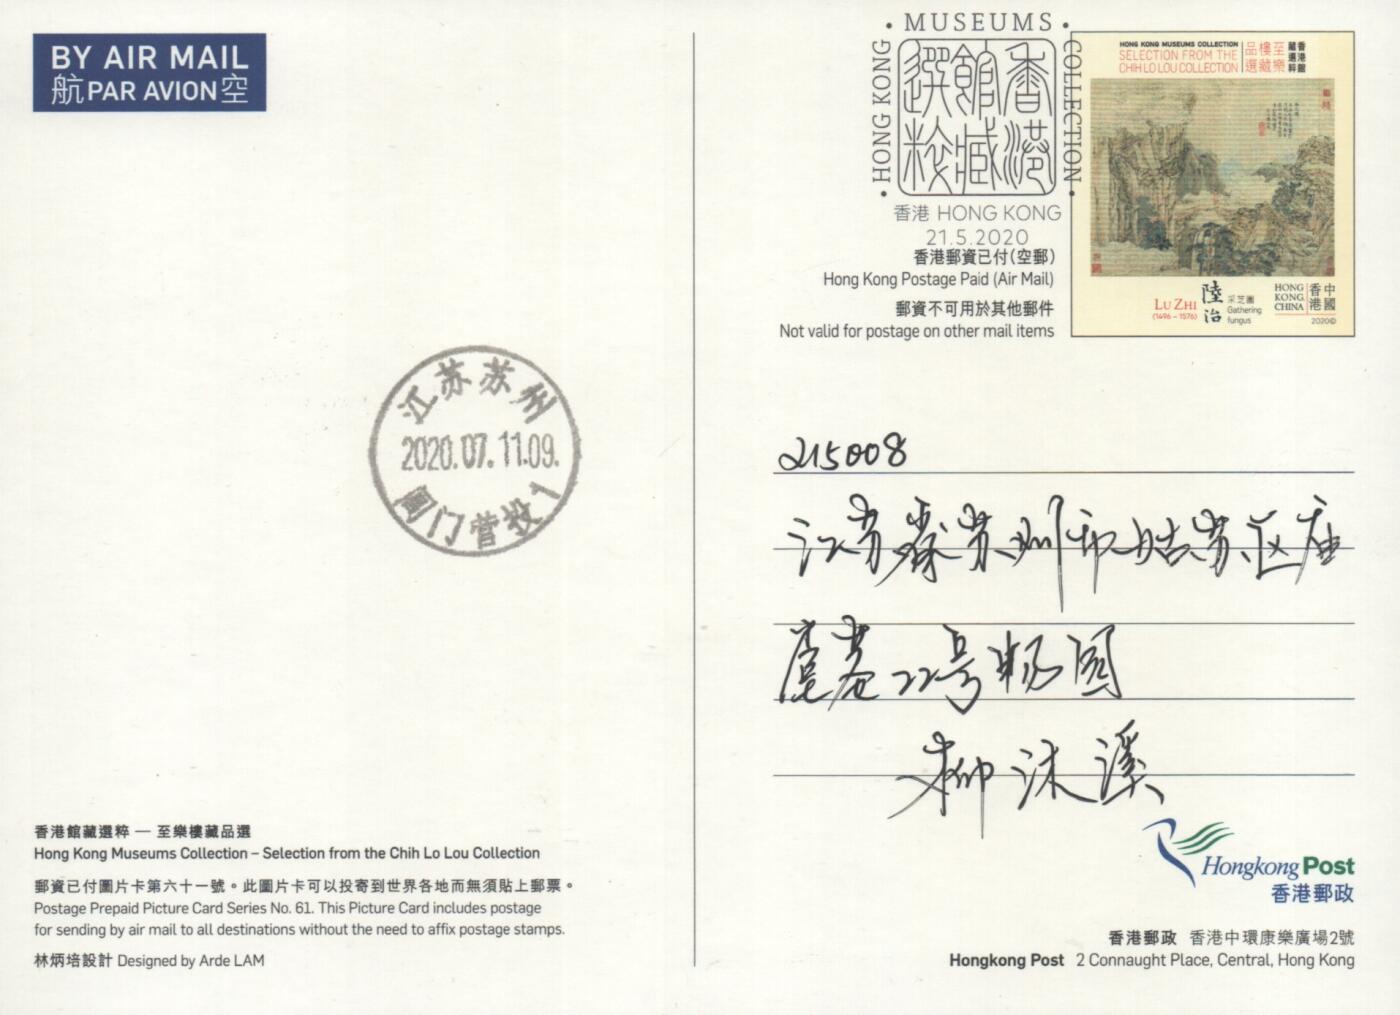 BY AIR MAIL
航 PAR AVION 空
MUSEUMS
HONG KONG
COLLECTION
香港
館藏
選粹
香港 HONG KONG
21.5.2020
香港郵資已付(空郵)
Hong Kong Postage Paid (Air Mail)
郵資不可用於其他郵件
Not valid for postage on other mail items
HONG KONG MUSEUMS COLLECTION
SELECTION FROM THE
CHIH LO LOU COLLECTION
至樂樓藏品選
香港館藏選粹
LU ZHI
(1496 – 1576)
陸治
采芝圖
Gathering
fungus
HONG
KONG,
CHINA
中國香港
2020©
江苏苏州
2020.07.11.09.
阊门营投1
215008
江苏省苏州市姑苏区
巷22号杨园
柳沐溪
香港館藏選粹 — 至樂樓藏品選
Hong Kong Museums Collection – Selection from the Chih Lo Lou Collection
郵資已付圖片卡第六十一號。此圖片卡可以投寄到世界各地而無須貼上郵票。
Postage Prepaid Picture Card Series No. 61. This Picture Card includes postage
for sending by air mail to all destinations without the need to affix postage stamps.
林炳培設計 Designed by Arde LAM
Hongkong Post
香港郵政
香港郵政 香港中環康樂廣場2號
Hongkong Post 2 Connaught Place, Central, Hong Kong